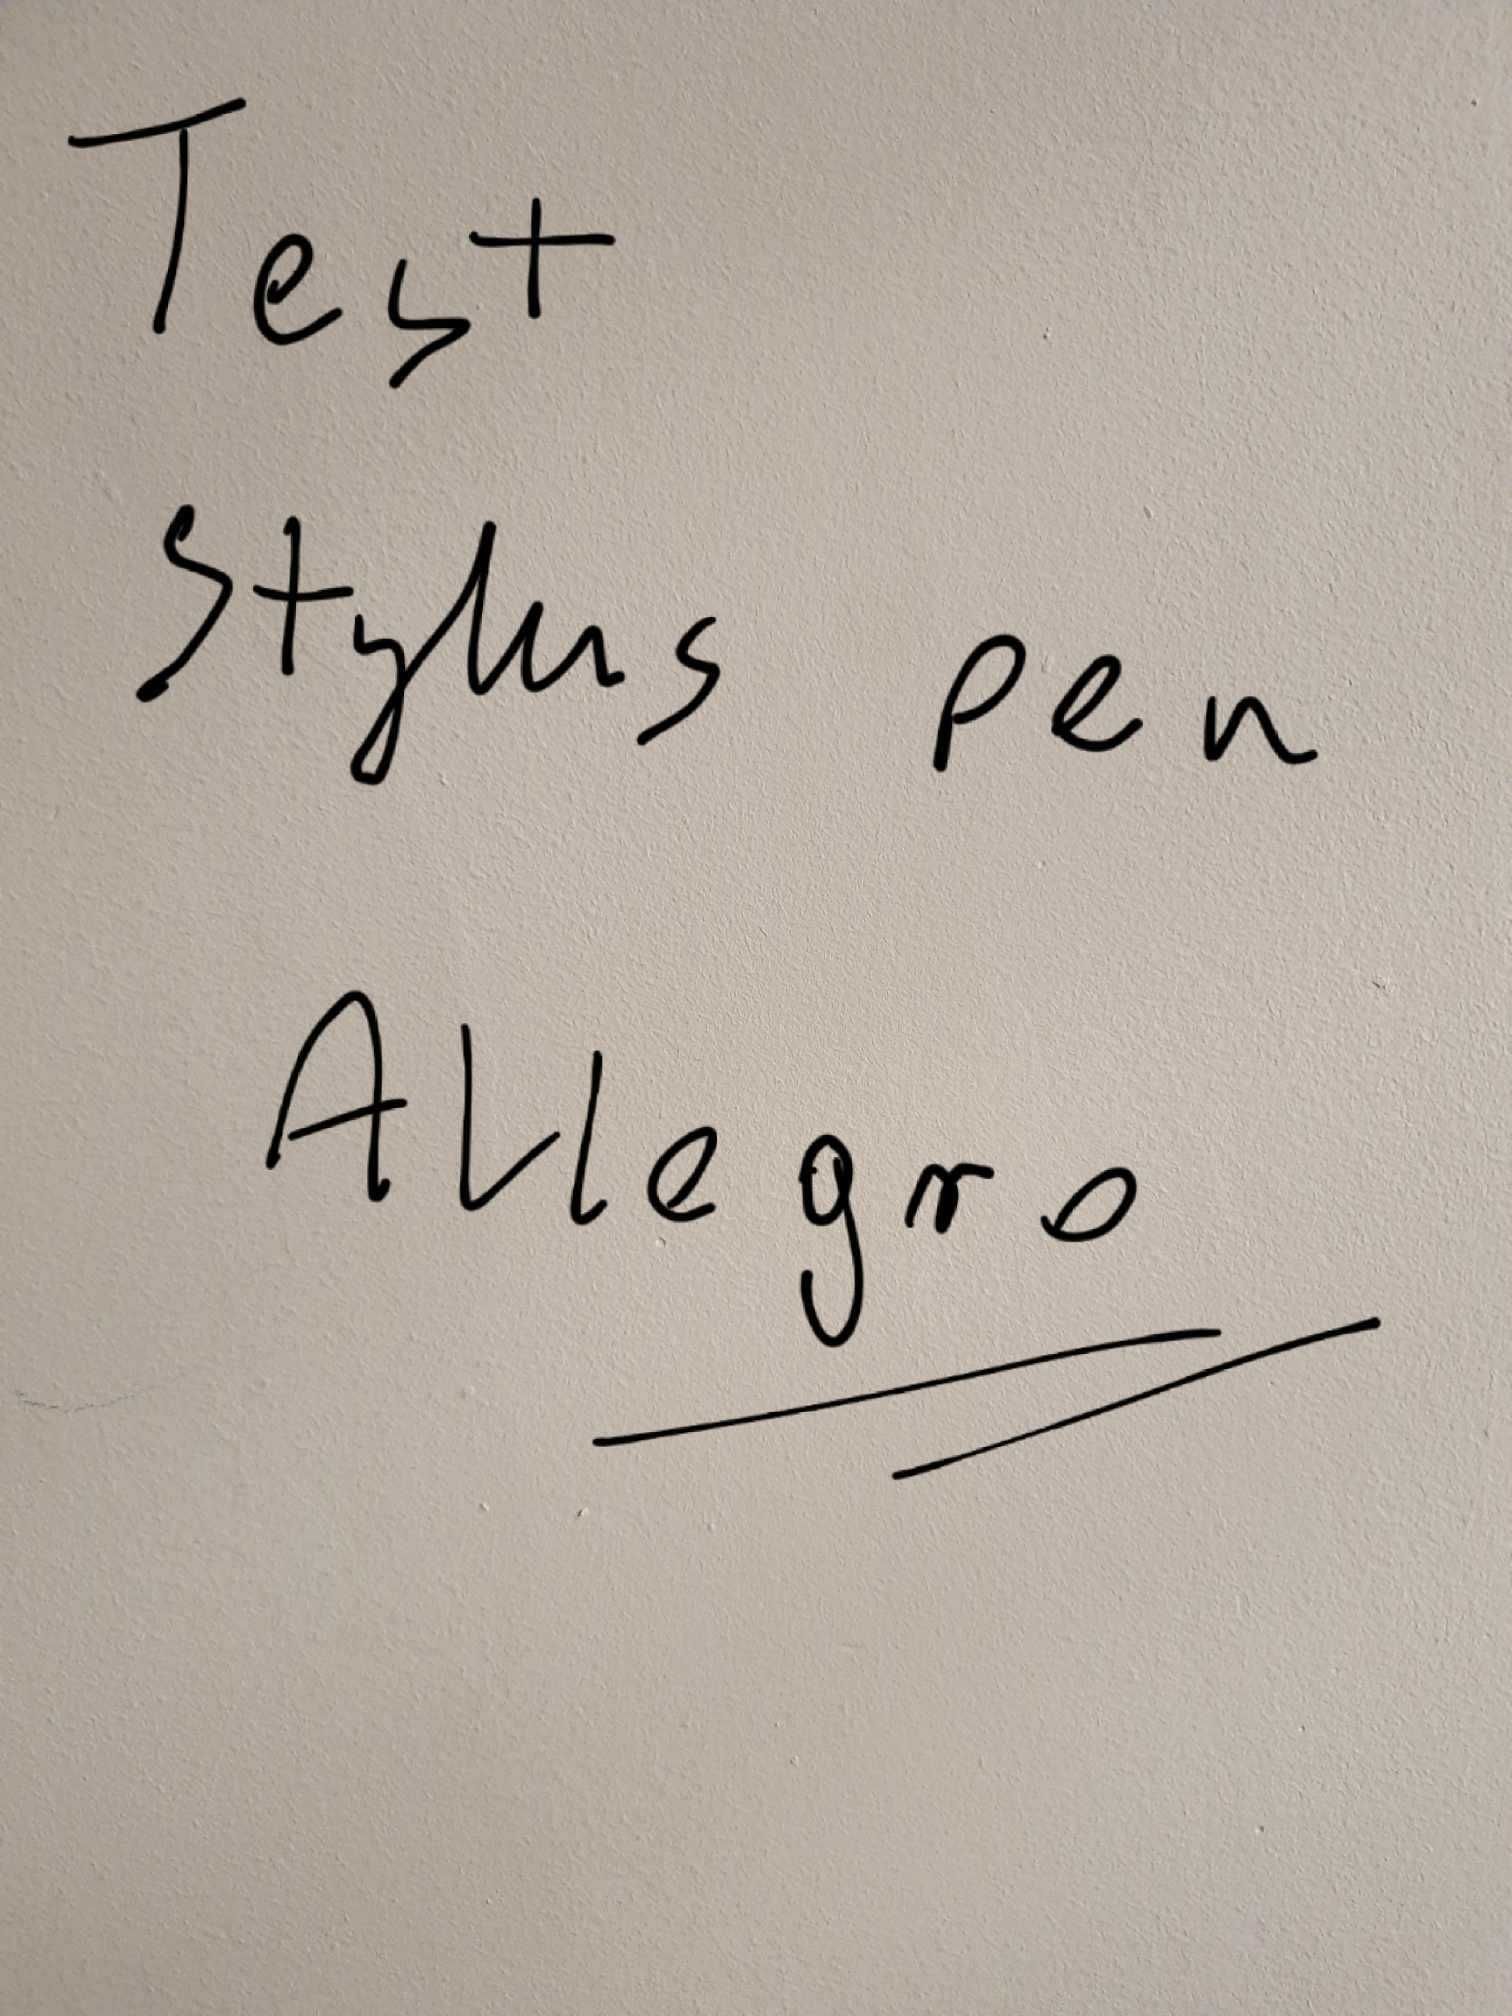 Test
Stylus pen
Allegro